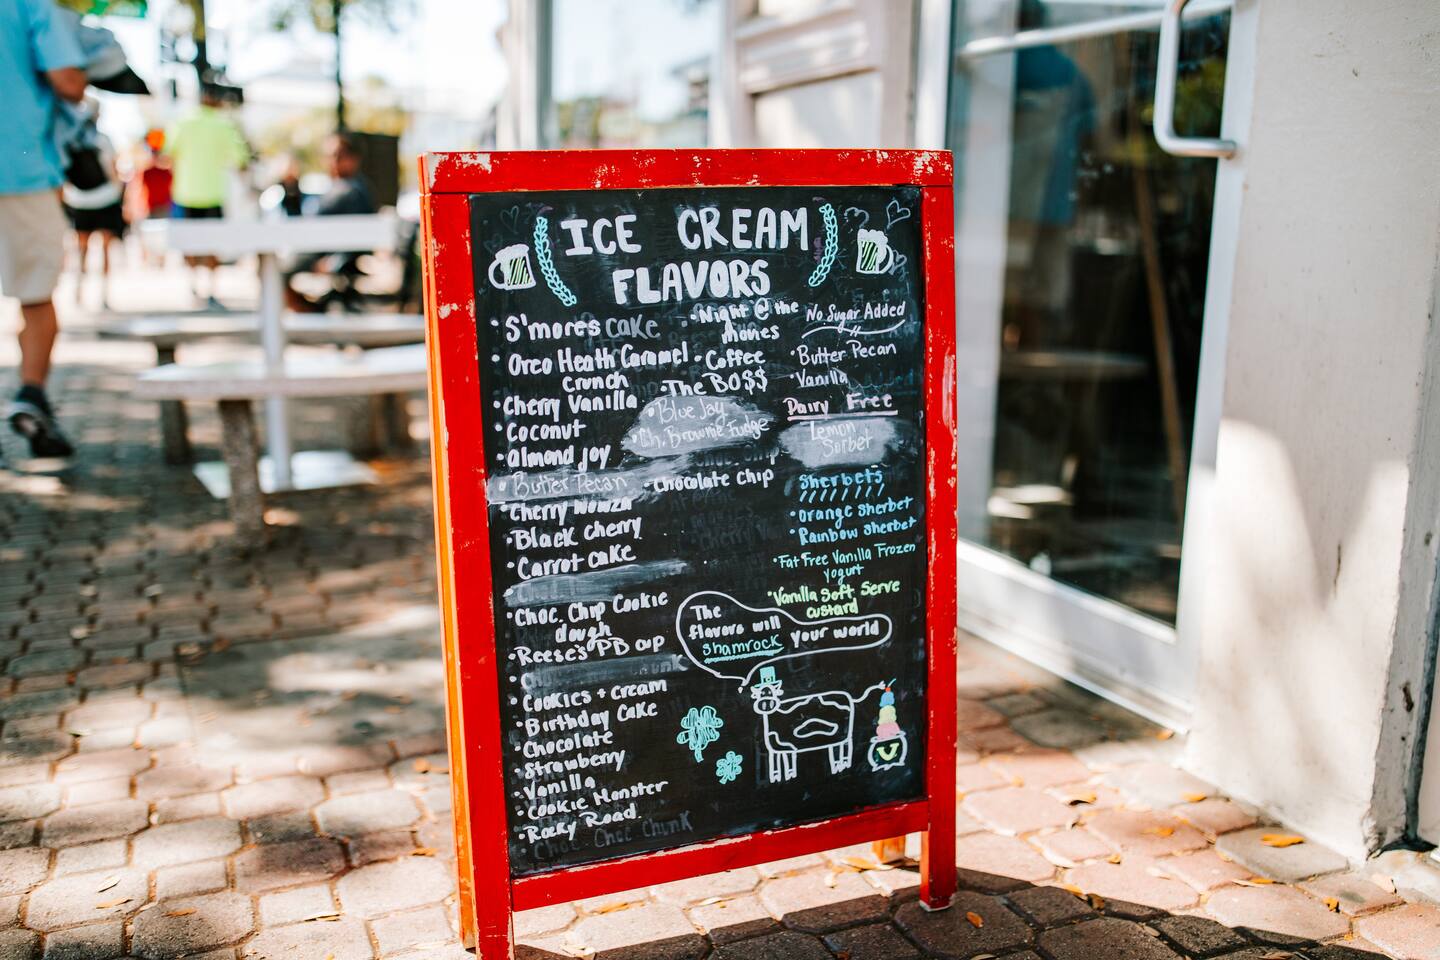 ICE CREAM
FLAVORS
• S'mores cake
• Oreo Heath Caramel
Crunch
• Cherry Vanilla
• Coconut
• Almond Joy
• Butter Pecan
• Cherry
• Black cherry
• Carrot cake
• Choc. Chip Cookie
dough
• Reese's PB cup
• Cookies + cream
• Birthday Cake
• Chocolate
• Strawberry
• Vanilla
• Cookie Monster
• Rocky Road
Choc. Chunk
• Night @ the
movies
• Coffee
• The BO$$
• Blue Jay
• Ch. Brownie Fudge
• Chocolate chip
No Sugar Added
• Butter Pecan
• Vanilla
Dairy Free
Lemon
Sorbet
Sherbets
• Orange sherbet
• Rainbow sherbet
• Fat Free Vanilla Frozen
yogurt
• Vanilla Soft Serve
custard
The
flavors will
shamrock your world